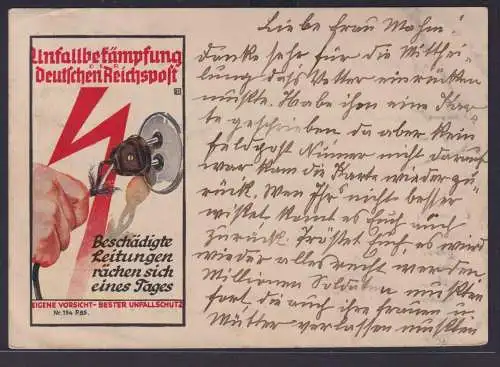 Unfallbekämpfung
DER
deutschen Reichspost
Beschädigte
Leitungen
rächen sich
eines Tages
EIGENE VORSICHT - BESTER UNFALLSCHUTZ
Nr. 194 P.BS.
Liebe Frau Mohm!
Danke sehr für die Mitthei-
lung daß Vetter einrücken
mußte. Habe ihm eine Kar-
te geschrieben da aber kein
Feldpost Numer nicht darauf
war kam die Karte wieder zu-
rück. Wen Ihr's nicht besser
wißet komt es Euch auch
zurück. Tröstet Euch, es wird
wieder alles recht werden
Millionen Soldaten mußten
fort, die auch ihre Frauen u.
Mütter verlassen mußten